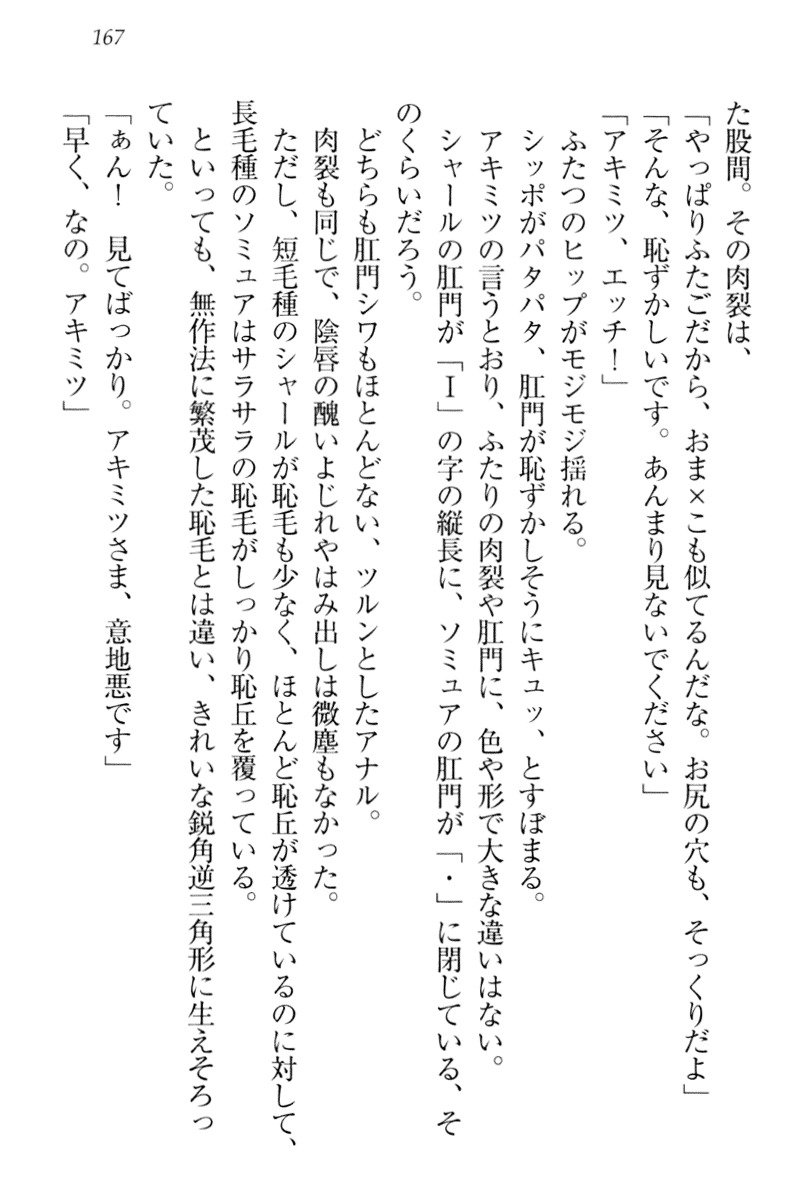 167
た股間。その肉裂は、
「やっぱりふたごだから、おま×こも似てるんだな。お尻の穴も、そっくりだよ」
「そんな、恥ずかしいです。あんまり見ないでください」
「アキミツ、エッチ！」
ふたつのヒップがモジモジ揺れる。
シッポがパタパタ、肛門が恥ずかしそうにキュッ、とすぼまる。
アキミツの言うとおり、ふたりの肉裂や肛門に、色や形で大きな違いはない。
シャールの肛門が「Ｉ」の字の縦長に、ソミュアの肛門が「・」に閉じている、そ
のくらいだろう。
どちらも肛門シワもほとんどない、ツルンとしたアナル。
肉裂も同じで、陰唇の醜いよじれやはみ出しは微塵もなかった。
ただし、短毛種のシャールが恥毛も少なく、ほとんど恥丘が透けているのに対して、
長毛種のソミュアはサラサラの恥毛がしっかり恥丘を覆っている。
といっても、無作法に繁茂した恥毛とは違い、きれいな鋭角逆三角形に生えそろっ
ていた。
「ぁん！　見てばっかり。アキミツさま、意地悪です」
「早く、なの。アキミツ」